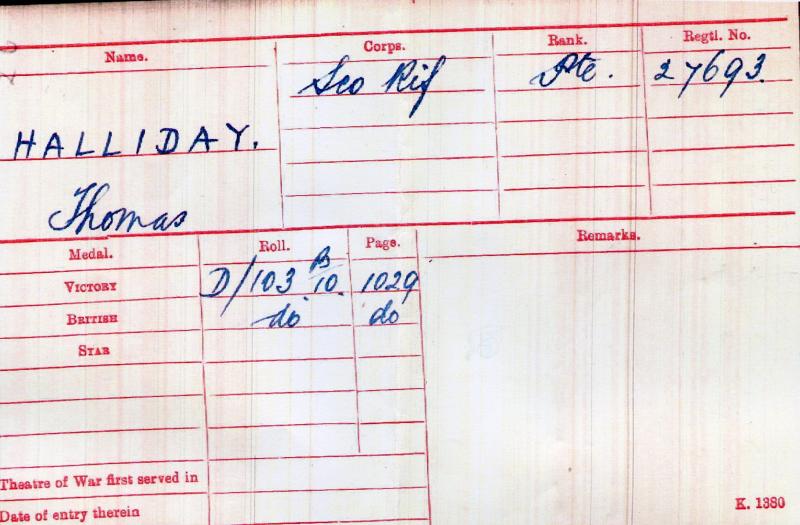 Name. Corps. Rank. Regtl. No.
Sco Rif Pte. 27693.
HALLIDAY.
Thomas
Medal. Roll. Page. Remarks.
VICTORY D/103 B/10. 1029
BRITISH do do
STAR
Theatre of War first served in
Date of entry therein
K. 1380